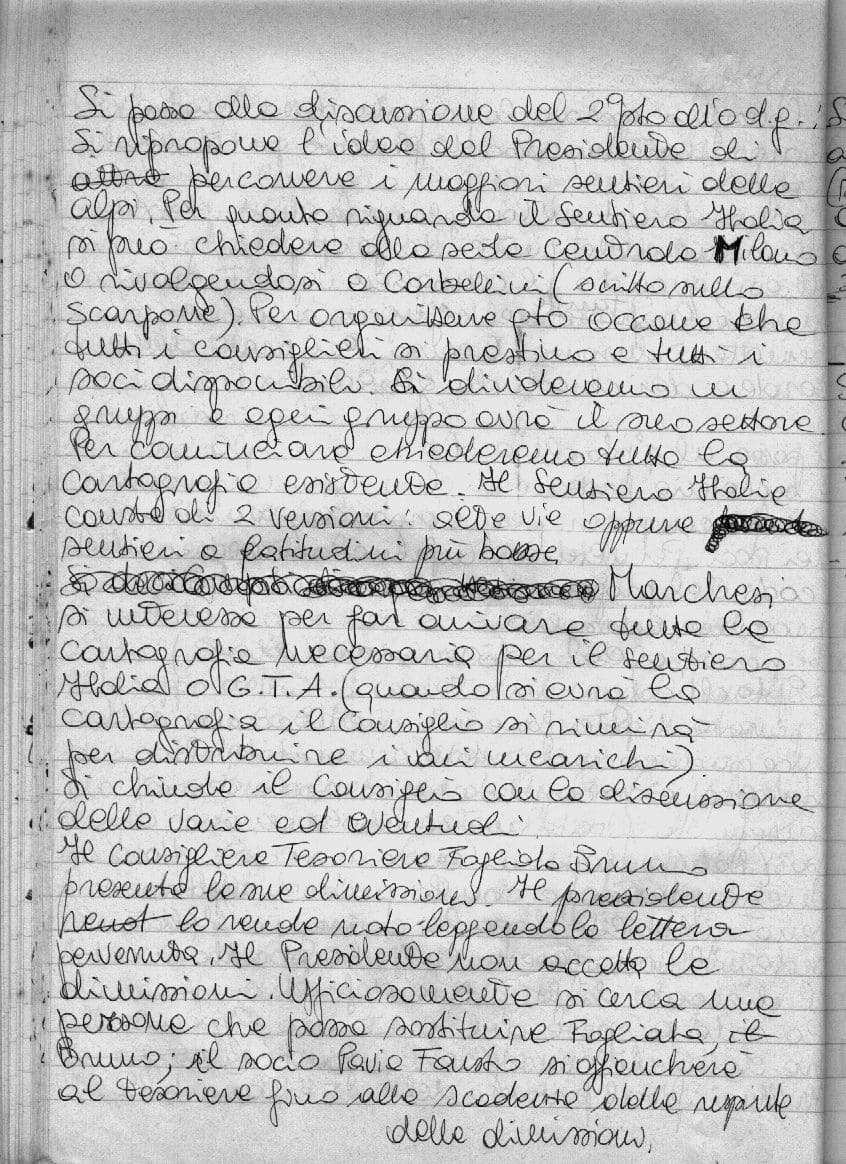 Si passa alla discussione del 2° pto all'o.d.g.:
Si ripropone l'idea del Presidente di
altre percorrere i maggiori sentieri delle
alpi. Per quanto riguarda il Sentiero Italia
si può chiedere alla sede Centrale Milano
o rivolgendosi a Corbellini (scritto sullo
scarpone). Per organizzare ciò occorre che
tutti i consiglieri si prestino e tutti i
soci disponibili. Si divideranno in
gruppi e ogni gruppo avrà il suo settore.
Per cominciare chiederemo tutta la
Cartografia esistente. Il Sentiero Italia
consta di 2 versioni: alte vie oppure
sentieri a latitudini più basse.
Marchesi
si interessa per far arrivare tutta la
cartografia necessaria per il sentiero
Italia o G.T.A. (quando si avrà la
cartografia il Consiglio si riunirà
per distribuire i vari incarichi)
Si chiude il Consiglio con la discussione
delle varie ed eventuali.
Il Consigliere Tesoriere Fogliata Bruno
presenta le sue dimissioni. Il presidente
lo rende noto leggendo la lettera
pervenuta. Il Presidente non accetta le
dimissioni. Ufficiosamente si cerca una
persona che possa sostituire Fogliata, il
Bruno; il socio Pavia Fausto si affiancherà
al tesoriere fino alla scadenza delle
delle dimissioni.